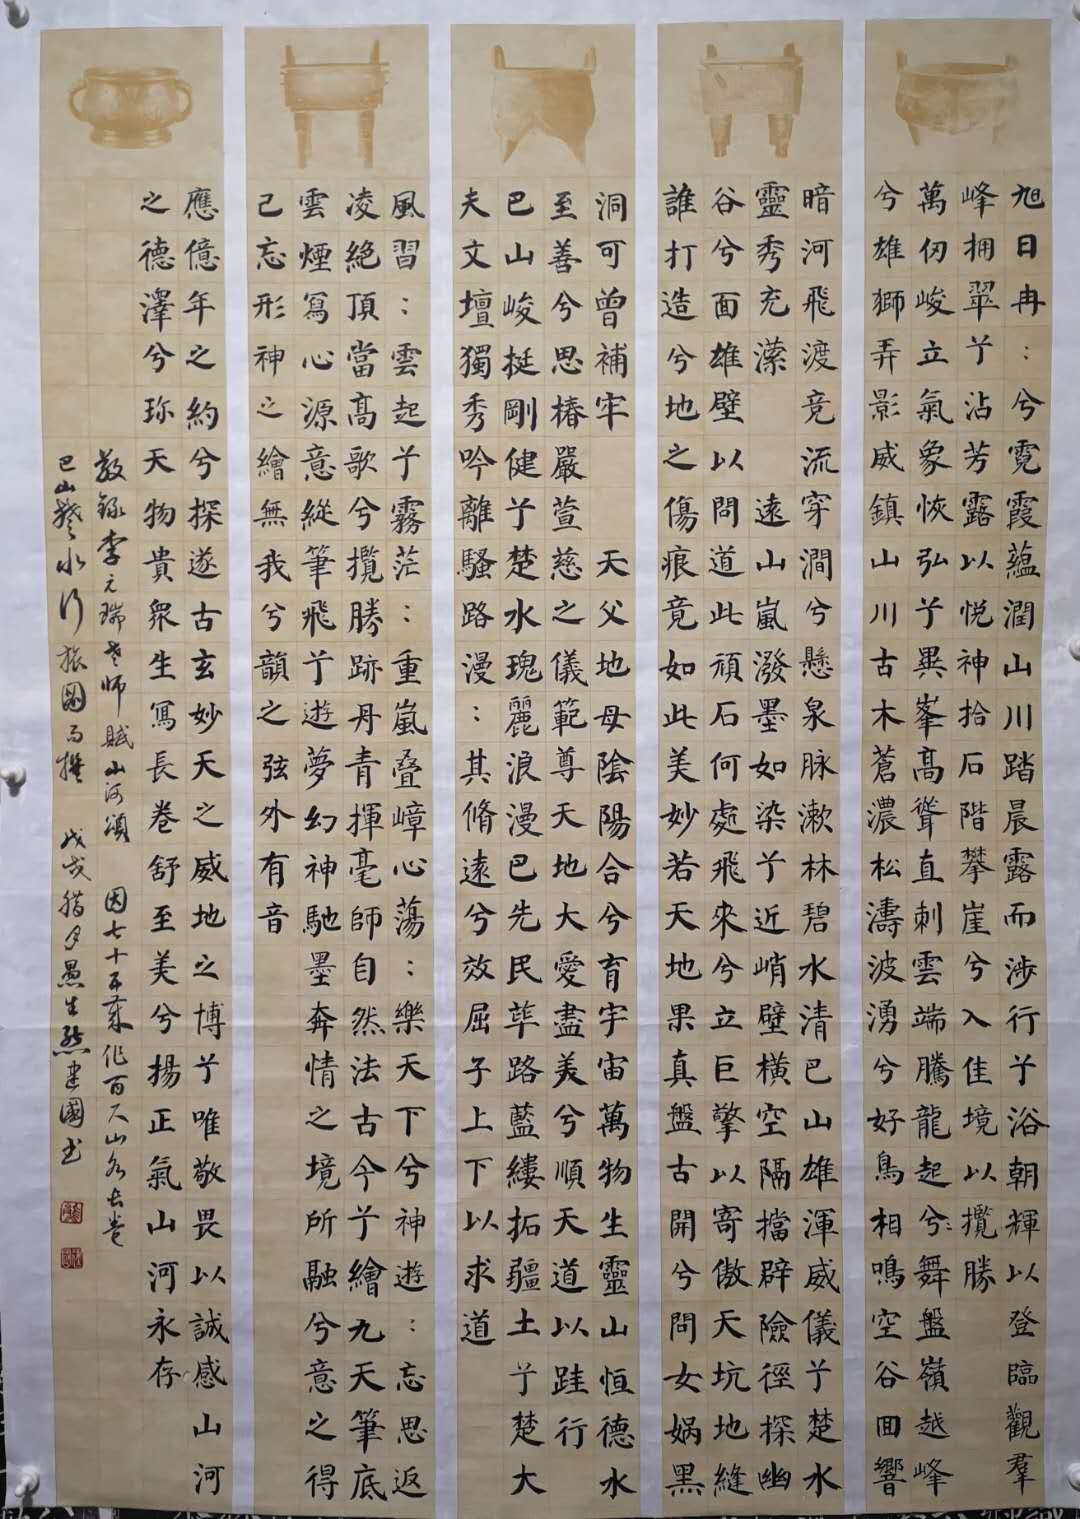 旭日冉：兮霓霞蘊潤山川踏晨露而涉行兮浴朝輝以登臨觀羣
峰拥翠兮沾芳露以悦神拾石階攀崖兮入佳境以攬勝
萬仞峻立氣象恢弘兮異峯高聳直刺雲端騰龍起兮舞盤嶺越峰
兮雄獅弄影威鎮山川古木蒼濃松濤波湧兮好鳥相鳴空谷回響
暗河飛渡竞流穿澗兮懸泉脉漱林碧水清巴山雄渾威儀兮楚水
靈秀充濚 遠山嵐潑墨如染兮近峭壁横空隔擋辟險徑探幽
谷兮面雄壁以問道此頑石何處飛來兮立巨擎以寄傲天坑地縫
誰打造兮地之傷痕竟如此美妙若天地果真盤古開兮問女娲黑
洞可曾補牢 天父地母陰陽合兮育宇宙萬物生靈山恒德水
至善兮思椿嚴萱慈之儀範尊天地大愛盡美兮順天道以跬行
巴山峻挺剛健兮楚水瑰麗浪漫巴先民筚路藍縷拓疆土兮楚大
夫文壇獨秀吟離騷路漫：其脩遠兮效屈子上下以求道
風習：雲起兮霧茫：重嵐叠嶂心蕩：樂天下兮神遊：忘思返
凌絶頂當高歌兮攬勝跡丹青揮毫師自然法古今兮繪九天筆底
雲煙寫心源意縱筆飛兮遊夢幻神馳墨奔情之境所融兮意之得
己忘形神之繪無我兮韻之弦外有音
應億年之約兮探遂古玄妙天之威地之博兮唯敬畏以誠感山河
之德澤兮珎天物貴衆生寫長卷舒至美兮揚正氣山河永存
敬錄李元瑞老師賦山河頌 因七十五歲作百尺山水長卷
巴山楚水行 振國而撰 戊戌腊月愚生熊建國书